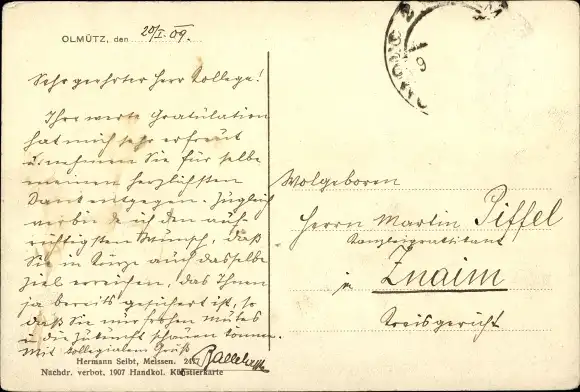 OLMÜTZ, den 20/I. 09.
Sehr geehrter Herr Kollege!
Ihre werte Gratulation
hat mich sehr erfreut
u. nehmen Sie für selbe
meinen herzlichsten
Dank entgegen. Zugleich
verbinde ich den auf-
richtigsten Wunsch, daß
Sie in Kürze auch dasselbe
Ziel erreichen, das Ihnen
ja bereits gesichert ist, so
daß Sie nur frohen Mutes
in die Zukunft schauen können.
Mit kollegialem Gruß
Hermann Seibt, Meissen.
Nachdr. verbot, 1907 Handkol. Künstlerkarte
Wolgeboren
Herrn Martin Piffel
in Znaim
Kreisgericht